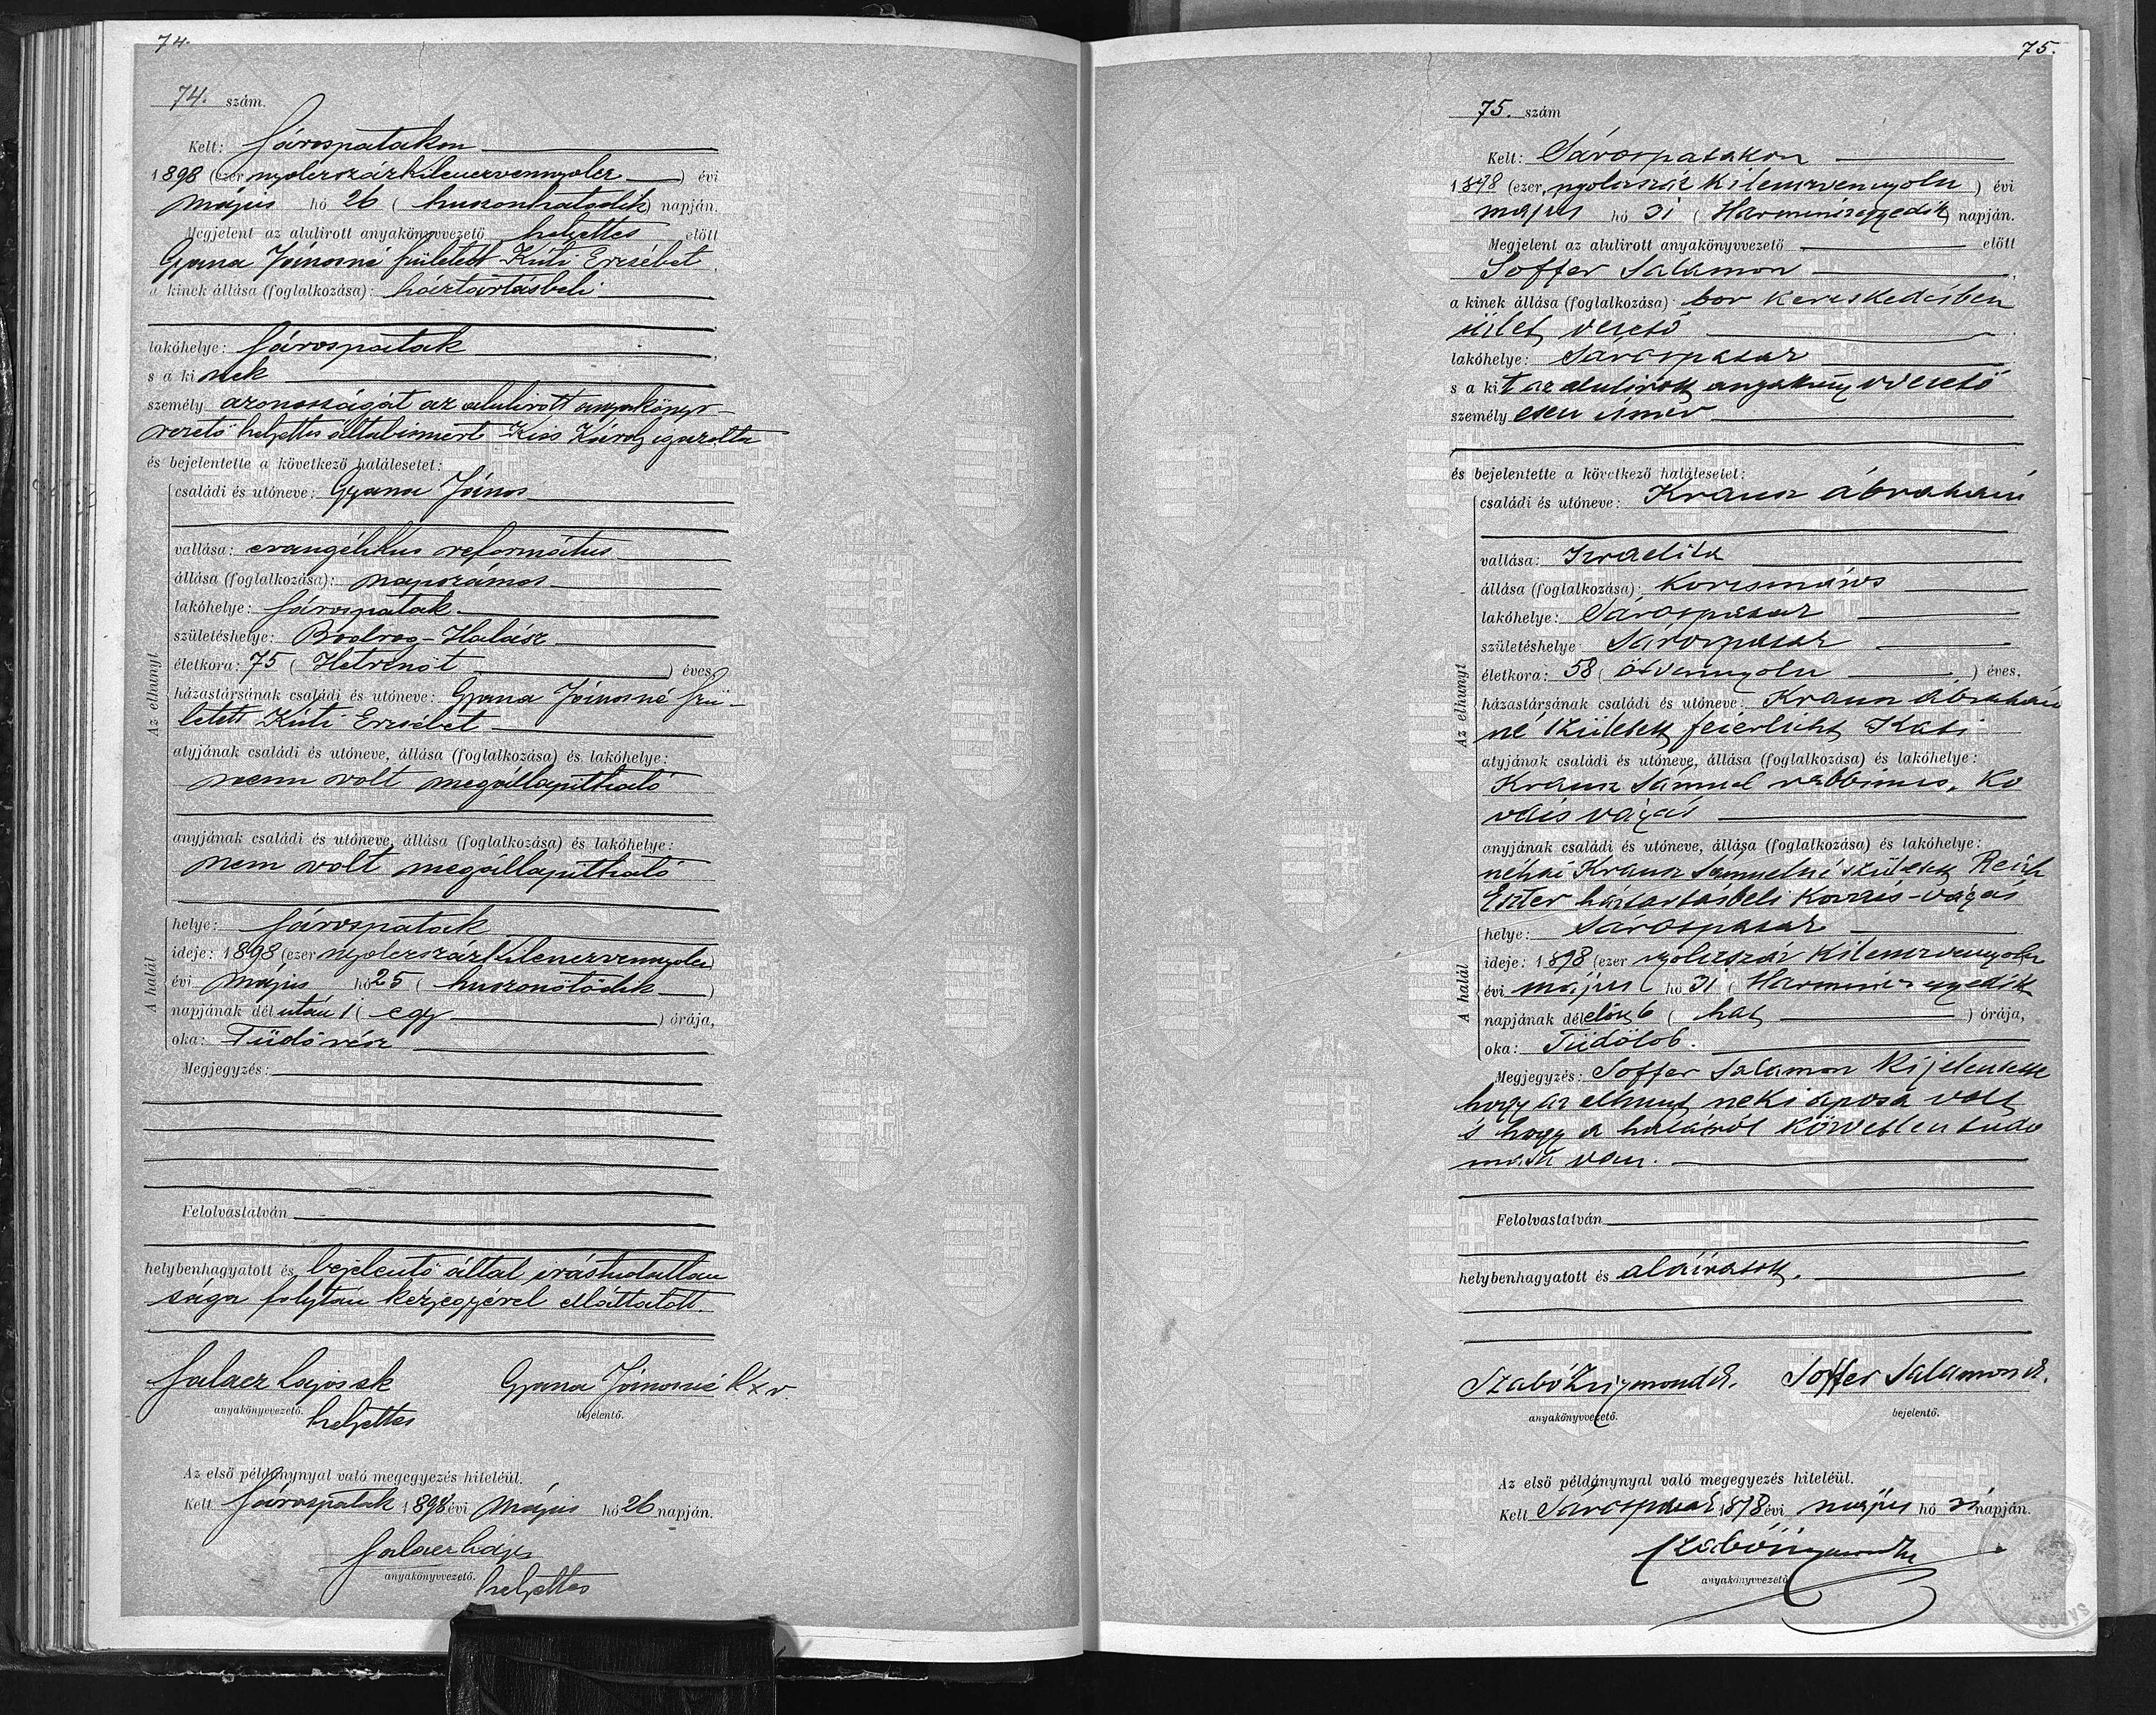 74.
74. szám.
Kelt: Sárospatakon
1898 (ezer nyolczszázkilenczvennyolcz) évi
május hó 26 (huszonhatodik) napján.
Megjelent az alulirott anyakönyvvezető helyettes előtt
Gyana Jánosné született Kúti Erzsébet,
a kinek állása (foglalkozása): háztartásbeli
lakóhelye: Sárospatak,
s a kinek
személy azonosságát az alulirott anyakönyv-
vezető helyettes által ismert Kiss Károly igazolta
és bejelentette a következő halálesetet:
Az elhunyt
családi és utóneve: Gyana János
vallása: evangélikus református
állása (foglalkozása): napszámos
lakóhelye: Sárospatak
születéshelye: Bodrog-Halász
életkora: 75 (Hetvenöt) éves,
házastársának családi és utóneve: Gyana Jánosné szü-
letett Kúti Erzsébet
atyjának családi és utóneve, állása (foglalkozása) és lakóhelye:
nem volt megállapítható
anyjának családi és utóneve, állása (foglalkozása) és lakóhelye:
nem volt megállapítható
A halál
helye: Sárospatak
ideje: 1898 (ezer nyolczszázkilenczvennyolcz)
évi május hó 25 (huszonötödik)
napjának dél után 1 (egy) órája,
oka: Tüdővész
Megjegyzés:
Felolvastatván
helybenhagyatott és bejelentő által irástudatlan
sága folytán kézjegyével elláttatott.
Lajos sk Gyana Jánosné k x v
anyakönyvvezető. bejelentő.
helyettes
Az első példánynyal való megegyezés hiteléül.
Kelt Sárospatak 1898 évi május hó 26 napján.
Lajos
anyakönyvvezető.
helyettes
75.
75. szám
Kelt: Sárospatakon
1898 (ezer, nyolczszáz kilenczvennyolcz) évi
május hó 31 (Harminczegyedik) napján.
Megjelent az alulirott anyakönyvvezető előtt
Soffer Salamon,
a kinek állása (foglalkozása): bor kereskedésben
üzlet vezető
lakóhelye: Sárospatak
s a kit az alulirott anyakönyvvezető
személyesen ismer
és bejelentette a következő halálesetet:
Az elhunyt
családi és utóneve: Krausz Ábrahám
vallása: Izraelita
állása (foglalkozása): Korcsmáros
lakóhelye: Sárospatak
születéshelye: Sárospatak
életkora: 58 (ötvennyolcz) éves,
házastársának családi és utóneve: Krausz Ábrahám
né született feierlicht Kati
atyjának családi és utóneve, állása (foglalkozása) és lakóhelye:
Krausz Sámuel rabbinus, Ko
vácsvágás
anyjának családi és utóneve, állása (foglalkozása) és lakóhelye:
néhai Krausz Sámuelné született Reich
Eszter háztartásbeli Kovács-vágás
A halál
helye: Sárospatak
ideje: 1898 (ezer nyolczszáz kilenczvennyolcz
évi május hó 31 (Harminczegyedik
napjának délelőtt 6 (hat) órája,
oka: Tüdőlob.
Megjegyzés: Soffer Salamon kijelentette
hogy az elhunyt neki aposa volt
s hogy a halálról közvetlen tudo
mása van.
Felolvastatván
helybenhagyatott és aláíratott.
Szabó Zsigmond sk. Soffer Salamon sk.
anyakönyvvezető. bejelentő.
Az első példánynyal való megegyezés hiteléül.
Kelt Sárospatak 1898 évi május hó 31 napján.
Szabó Zsigmond
anyakönyvvezető